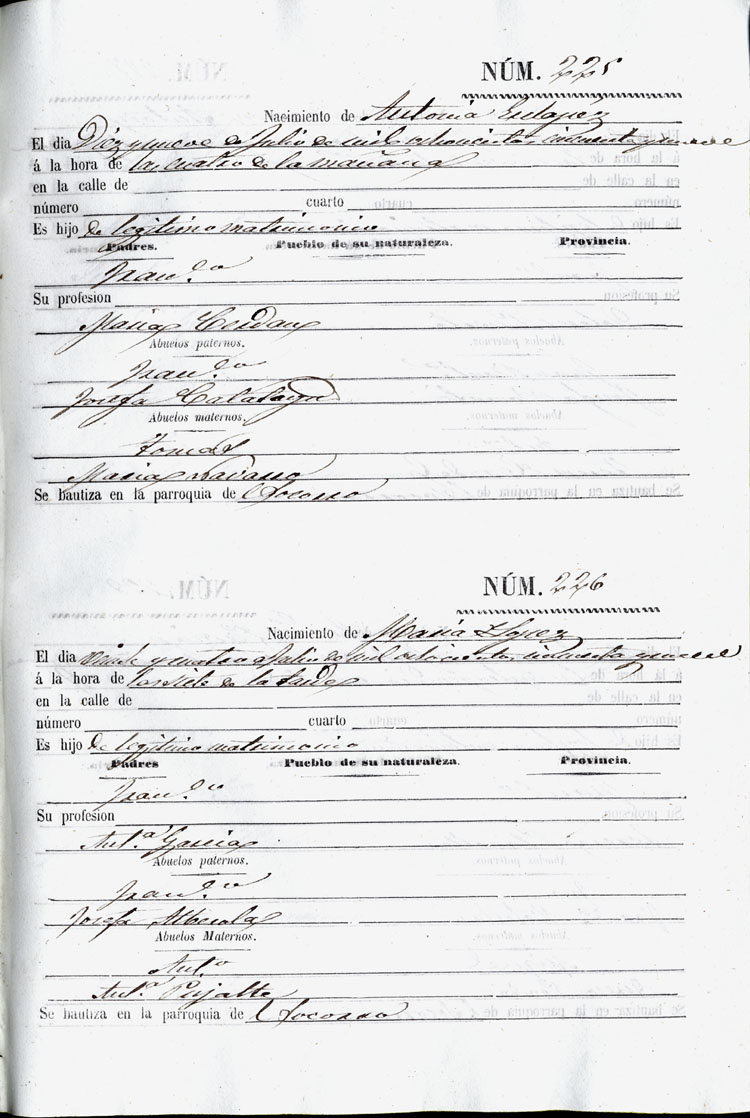 NÚM. 225
Nacimiento de Antonia
El dia Diez y nueve de Julio de mil ochocientos cincuenta y nueve
á la hora de las cuatro de la mañana
en la calle de
número cuarto
Es hijo de legitimo matrimonio
Padres. Pueblo de su naturaleza. Provincia.
Fran.co
Su profesion
Maria Cerdan
Abuelos paternos.
Fran.co
Josefa Calatayud
Abuelos maternos.
Tomas
Maria Navarro
Se bautiza en la parroquia de Socorro
NÚM. 226
Nacimiento de Maria Lopez
El dia Veinte y cuatro de Julio de mil ochocientos cincuenta y nueve
á la hora de las siete de la tarde
en la calle de
número cuarto
Es hijo de legitimo matrimonio
Padres Pueblo de su naturaleza. Provincia.
Fran.co
Su profesion
Ant.a Garcia
Abuelos paternos.
Fran.co
Josefa Alberola
Abuelos Maternos.
Ant.o
Ant.a Pujalte
Se bautiza en la parroquia de Socorro